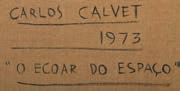 CARLOS CALVET
1973
"O ECOAR DO ESPAÇO"